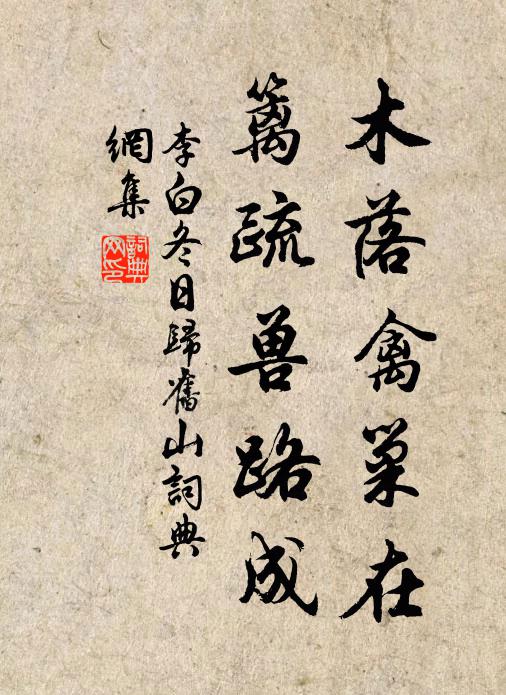 木落禽巢在
篱疏兽路成
李白冬日歸舊山詞典
網集
詞典网印